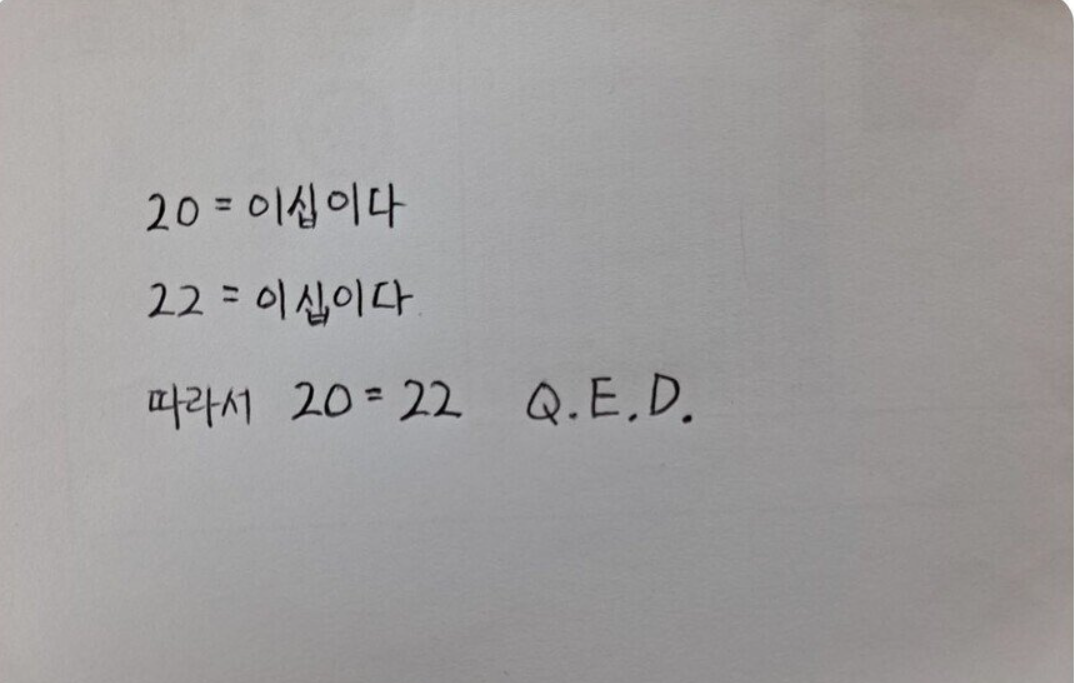 20 = 이십이다
22 = 이십이다
따라서 20 = 22 Q.E.D.